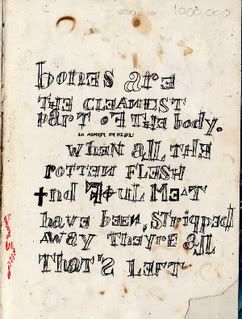 1000,000
bones are
THE CLEANEST
part of the body.
when all THE
rotten FLESH
and foul MEAT
have been, stripped
AWAY THEYRE all
THAT'S LEFT